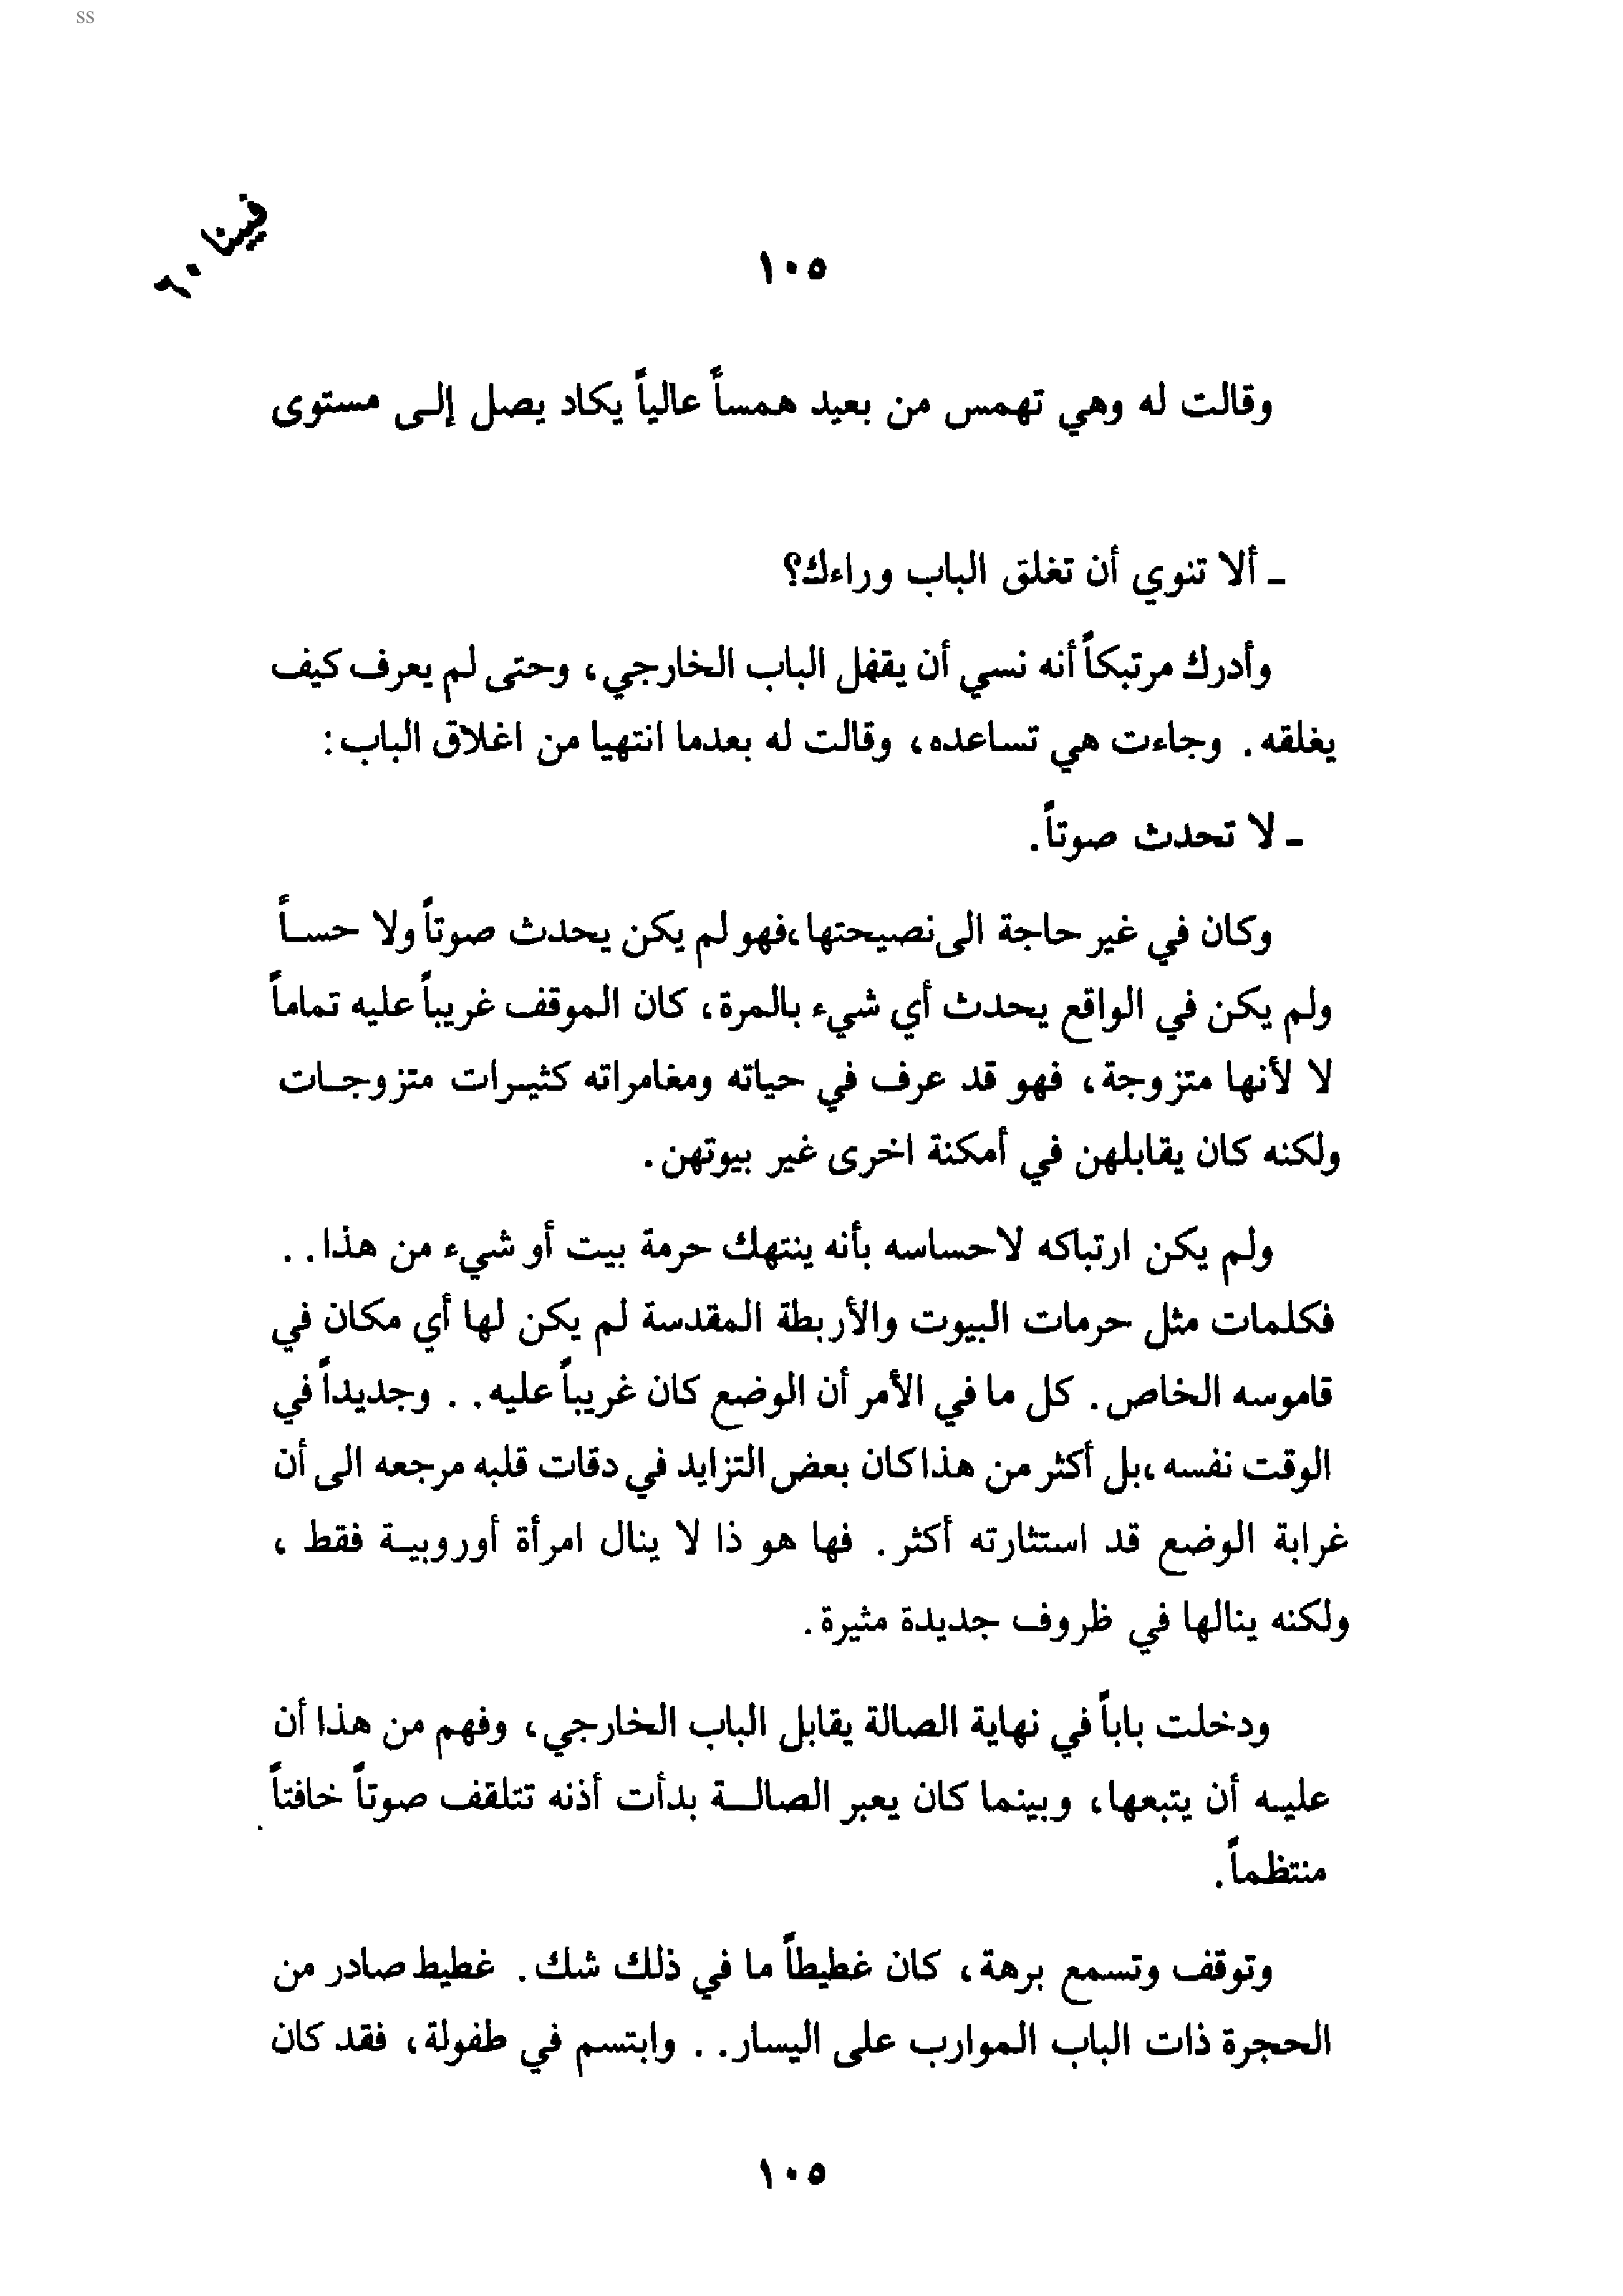 ss
فيينا ٦٠
١٠٥
وقالت له وهي تهمس من بعيد همساً عالياً يكاد يصل إلى مستوى
ـ ألا تنوي أن تغلق الباب وراءك؟
وأدرك مرتبكاً أنه نسي أن يقفل الباب الخارجي، وحتى لم يعرف كيف
يغلقه. وجاءت هي تساعده، وقالت له بعدما انتهيا من اغلاق الباب:
ـ لا تحدث صوتاً.
وكان في غير حاجة الى نصيحتها، فهو لم يكن يحدث صوتاً ولا حسـاً
ولم يكن في الواقع يحدث أي شيء بالمرة، كان الموقف غريباً عليه تماماً
لا لأنها متزوجة، فهو قد عرف في حياته ومغامراته كثيـرات متزوجـات
ولكنه كان يقابلهن في أمكنة اخرى غير بيوتهن.
ولم يكن ارتباكه لاحساسه بأنه ينتهك حرمة بيت أو شيء من هذا. .
فكلمات مثل حرمات البيوت والأربطة المقدسة لم يكن لها أي مكان في
قاموسه الخاص. كل ما في الأمر أن الوضع كان غريباً عليه. . وجديداً في
الوقت نفسه، بل أكثر من هذا كان بعض التزايد في دقات قلبه مرجعه الى أن
غرابة الوضع قد استثارته أكثر. فها هو ذا لا ينال امرأة أوروبيـة فقط ،
ولكنه ينالها في ظروف جديدة مثيرة.
ودخلت باباً في نهاية الصالة يقابل الباب الخارجي، وفهم من هذا أن
عليـه أن يتبعها، وبينما كان يعبر الصالـــة بدأت أذنه تتلقف صوتاً خافتاً
منتظماً.
وتوقف وتسمع برهة، كان غطيطاً ما في ذلك شك. غطيط صادر من
الحجرة ذات الباب الموارب على اليسار. . وابتسم في طفولة، فقد كان
١٠٥